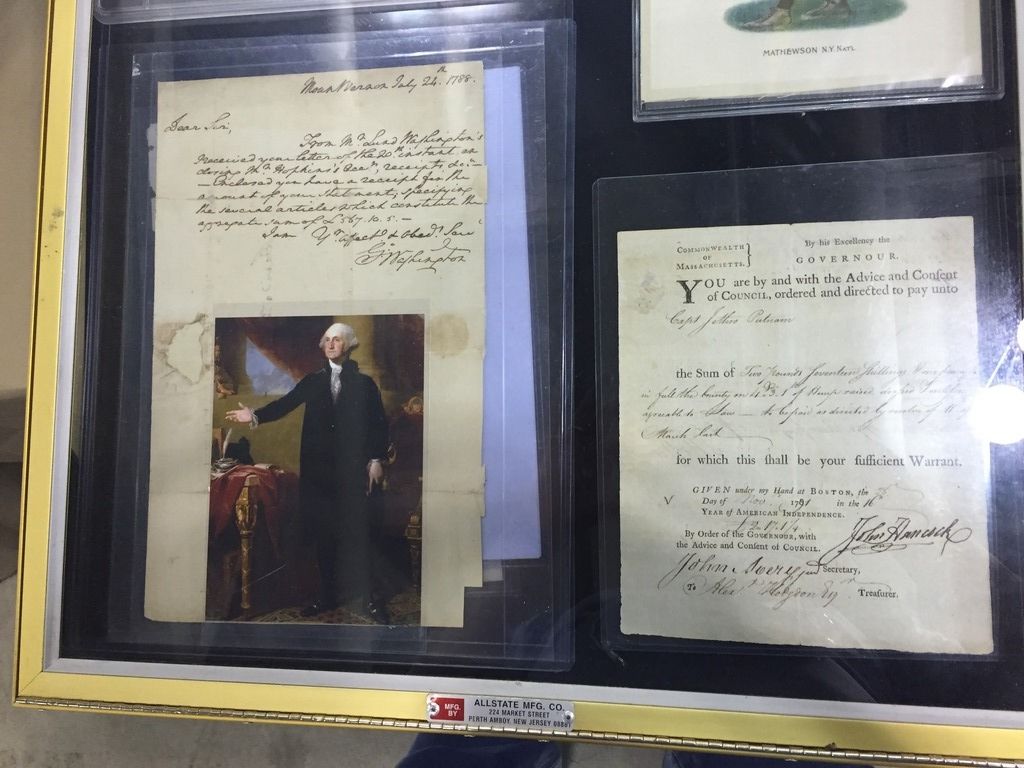 Mount Vernon July 24.th 1788.
Dear Sir,
From Mr. Lund Washington I
received your letter of the 20th. instant en
closing Mr. Hopkins's receipts &c.
Enclosed you have a receipt for the
amount of your statement, specifying
the several articles which constitute the
aggregate sum of £567.10.5.—
I am Yr. affect. & Obed.
Go Washington
MATHEWSON N.Y. NAT'L
COMMONWEALTH
OF
MASSACHUSETTS.
By his Excellency the
GOVERNOUR.
YOU are by and with the Advice and Consent
of COUNCIL, ordered and directed to pay unto
Capt Jethro Putnam
the Sum of Two Pounds Seventeen Shillings
in full the bounty on of Hemp raised
agreeable to Law — as directed of
March last
for which this shall be your sufficient Warrant.
GIVEN under my Hand at BOSTON, the
Day of Nov 1791 in the 16
YEAR of AMERICAN INDEPENDENCE.
£ 2.17.
By Order of the GOVERNOUR, with
the Advice and Consent of COUNCIL.
John Hancock
John Avery jun Secretary,
To Alex Hodgdon Esq Treasurer.
MFG. BY
ALLSTATE MFG. CO.
224 MARKET STREET
PERTH AMBOY, NEW JERSEY 08861